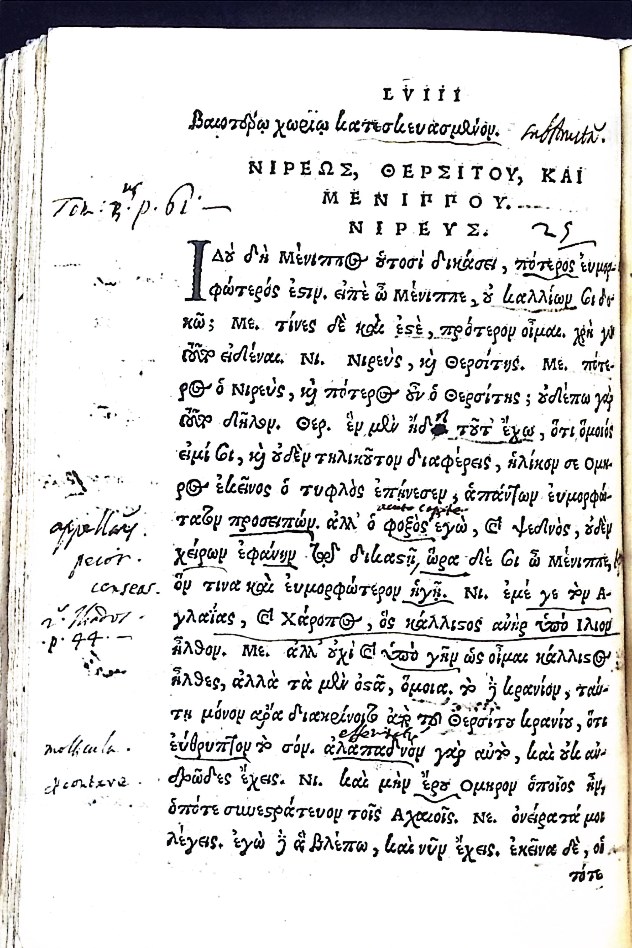 LVIII
Βαιοτυρίῳ χωρίῳ κατεσκευασμένον.
ΝΙΡΕΩΣ, ΘΕΡΣΙΤΟΥ, ΚΑΙ
ΜΕΝΙΠΠΟΥ.
ΝΙΡΕΥΣ. 25
ΙΔοὺ δὴ Μένιππος οὑτοσὶ δικάσει, πότερος εὐμορ-
φώτερός ἐστιν. εἰπὲ ὦ Μένιππε, οὐ καλλίων σοι δο-
κῶ; Με. τίνες δὲ καὶ ἐστέ, πρότερον οἶμαι. χρὴ γὰρ
τοῦτο εἰδέναι. Νι. Νιρεὺς, καὶ Θερσίτης. Με. πότε-
ρος ὁ Νιρεὺς, καὶ πότερος οὖν ὁ Θερσίτης; οὐδέπω γὰρ
τοῦτο δῆλον. Θερ. ἓν μὲν ἤδη τοῦτ' ἔχω, ὅτι ὅμοιός
εἰμί σοι, καὶ οὐδὲν τηλικοῦτον διαφέρεις, ἡλίκον σε Ομη-
ρος ἐκεῖνος ὁ τυφλὸς ἐπῄνεσεν, ἁπάντων εὐμορφώ-
τατον προσειπών. ἀλλ' ὁ φοξὸς ἐγὼ, καὶ ψεδνὸς, οὐδὲν
χείρων ἐφάνην τῷ δικαστῇ, ὥρα δέ σοι ὦ Μένιππε,
ὅν τινα καὶ εὐμορφώτερον ἡγῇ. Νι. ἐμέ γε τὸν Α-
γλαΐας, καὶ Χάροπος, ὃς κάλλιστος ἀνὴρ ὑπὸ Ιλιον
ἦλθον. Με. ἀλλ' οὐχὶ καὶ ὑπὸ γῆν ὡς οἶμαι κάλλιστος
ἦλθες, ἀλλὰ τὰ μὲν ὀστᾶ, ὅμοια. τὸ δὲ κρανίον, ταύ-
τῃ μόνον ἄρα διακρίνοιτο ἀπὸ τοῦ Θερσίτου κρανίου, ὅτι
εὔθρυπτον τὸ σόν. ἀλαπαδνὸν γὰρ αὐτὸ, καὶ οὐκ ἀν-
δρῶδες ἔχεις. Νι. καὶ μὴν ἔρου Ομηρον ὁποῖος ἦν,
ὁπότε συνεστράτευον τοῖς Αχαιοῖς. Με. ὀνείρατά μοι
λέγεις. ἐγὼ δὲ ἃ βλέπω, καὶ νῦν ἔχεις. ἐκεῖνα δὲ, οἱ
τότε
appellans.
peior.
censeas.
p. 44.
mollicula.